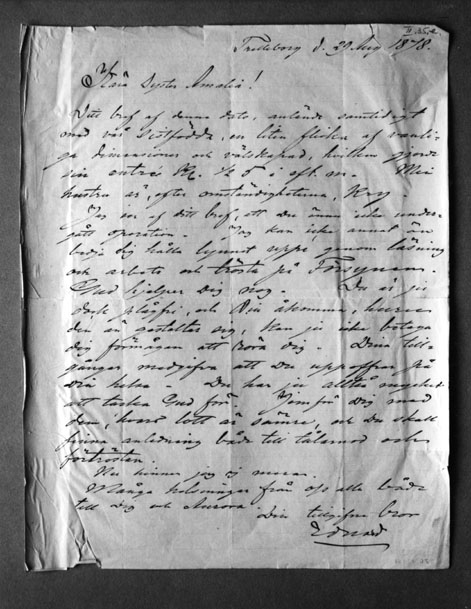 d. 29 Aug 1878.
Kära Syster Amalia!
Ditt bref af denna dato, anlände samtidigt
med vår sistfödda, en liten flicka af vanli-
ga dimensioner och välskapad, hvilken gjorde
sin entré Kl. ½ 5 i eft. m. Min
hustru är, efter omständigheterna, kry.
Jag ser af ditt bref, att Du ännu icke under-
gått operation. Jag kan icke annat än
bedja dig hålla lynnet uppe genom läsning
och arbete och trösta på Försynen.
Gud hjelper Dig nog. Du är ju
dock plågfri, och Din åkomma, huru
den är gestaltar sig, kan ju icke betaga
dig förmågan att röra dig. Dina till-
gångar medgifva att Du uppoffrar på
din helsa. Du har ju alltså mycket
att tacka Gud för. Jemför dig med
den, hvars lott är sämre, och du skall
finna anledning både till tålamod och
förtröstan.
Nu hinner jag ej mera.
Många helsningar från oss alla både
till Dig och Aurora.
Din tillgifne bror
Edvard